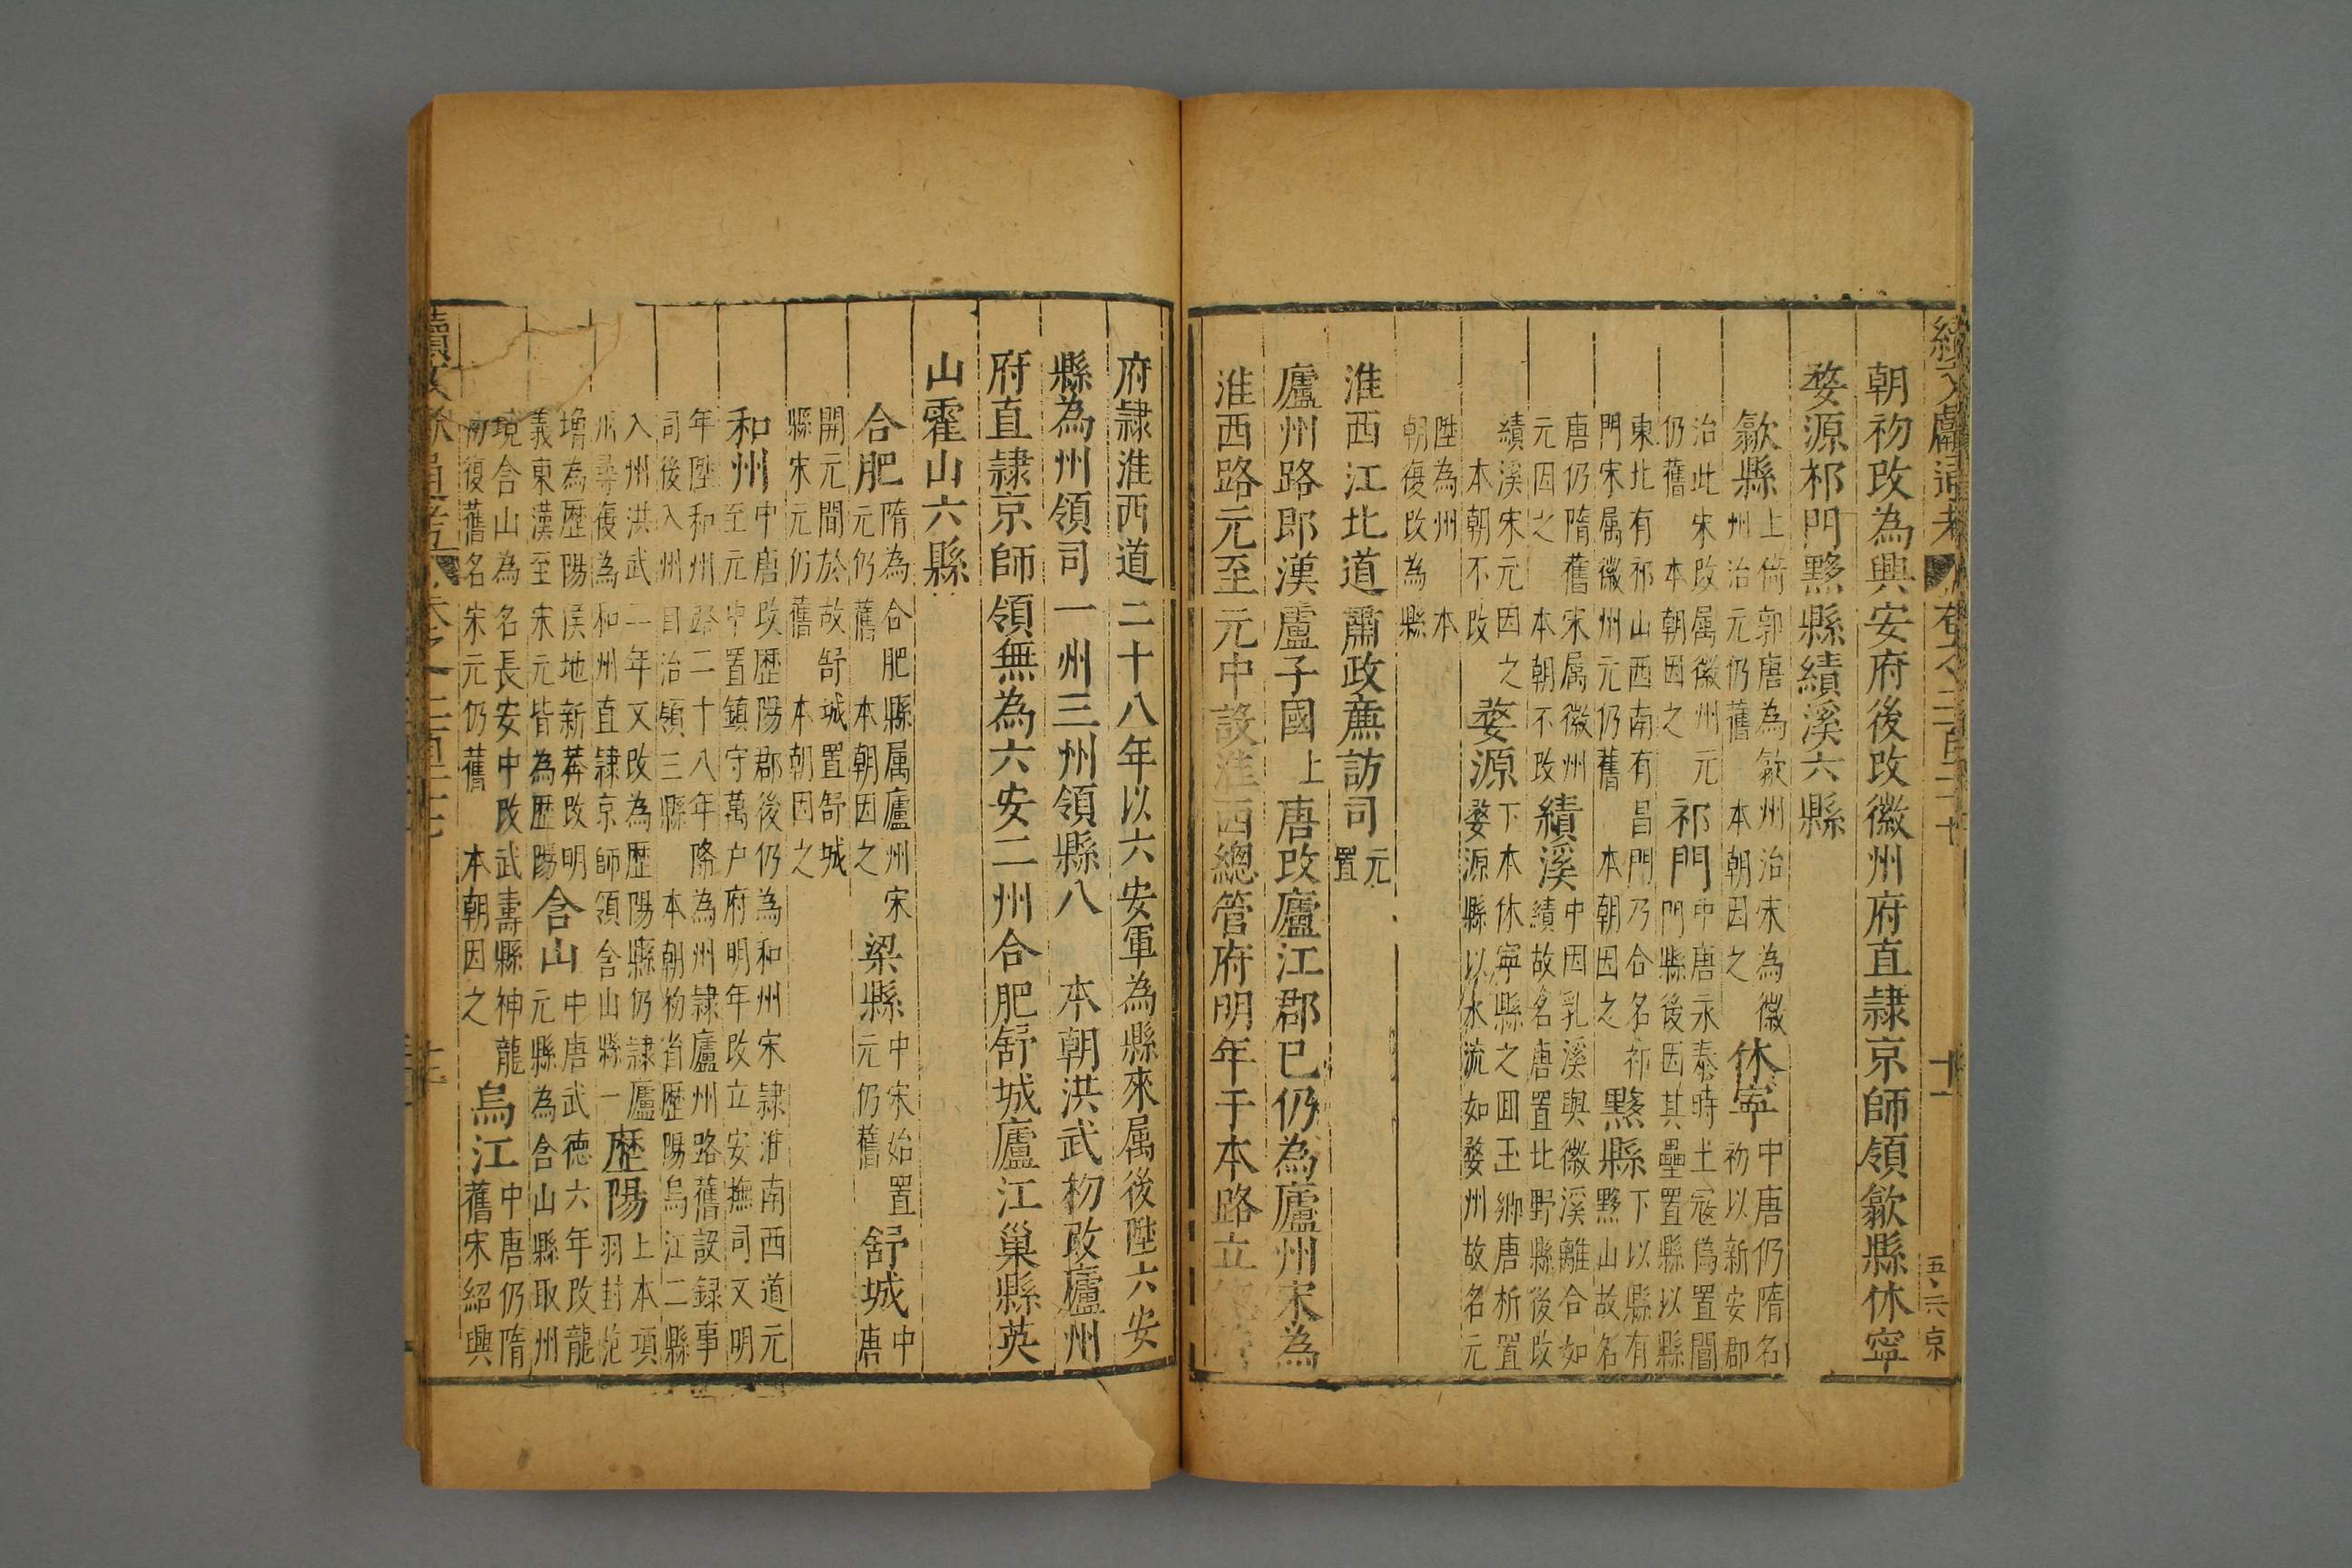 朝初改為興安府後改徽州府直隷京師領歙縣休寧
婺源祁門黟縣績溪六縣
歙縣上倚郭唐為歙州治宋為徽
州治元仍舊 本朝因之
休寧中唐仍隋名
初以新安郡
治此宋改属徽州元
仍舊 本朝因之
祁門中唐永泰時土冦偽置閶
門縣後因其壘置縣以縣
東北有祁山西南有昌門乃合名祁
門宋属徽州元仍舊 本朝因之
黟縣下以縣有
黟山故名
唐仍隋舊宋属徽州
元因之 本朝不改
績溪中因乳溪與徽溪離合如
績故名唐置北野縣後改
績溪宋元因之
本朝不改
婺源下本休寧縣之回玉鄉唐析置
婺源縣以水流如婺州故名元
陞為州 本
朝復改為縣
淮西江北道肅政亷訪司元
置
廬州路即漢廬子國上唐改廬江郡已仍為廬州宋為
淮西路元至元中設淮西總管府明年于本路立
府隷淮西道二十八年以六安軍為縣來属後陞六安
縣為州領司一州三州領縣八 本朝洪武初改廬州
府直隷京師領無為六安二州合肥舒城廬江巢縣英
山霍山六縣
合肥隋為合肥縣属廬州宋
元仍舊 本朝因之
梁縣中宋始置
元仍舊
舒城中
唐
開元間於故舒城置舒城
縣宋元仍舊 本朝因之
和州中唐改歷陽郡後仍為和州宋隷淮南西道元
至元中置鎮守萬户府明年改立安撫司又明
年陞和州路二十八年降為州隷廬州路舊設録事
司後入州自治領三縣 本朝初省歷陽烏江二縣
入州洪武二年又改為歷陽縣仍隷廬
州尋復為和州直隷京師領含山縣一
歷陽上本項
羽封范
增為歷陽侯地新莽改明
義東漢至宋元皆為歷陽
含山中唐武德六年改龍
元縣為含山縣取州
境含山為名長安中改武壽縣神龍
初復舊名宋元仍舊 本朝因之
烏江中唐仍隋
舊宋紹興